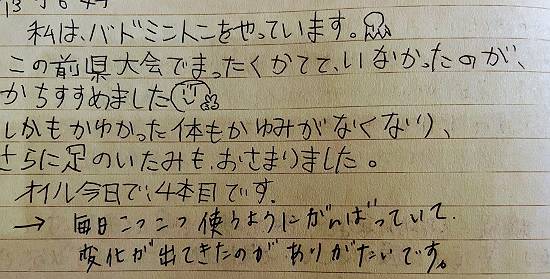 私は、バドミントンをやっています。
この前県大会でまったくかてて、いなかったのが、
かちすすめました
しかもかゆかった体もかゆみがなくなり、
さらに足のいたみも、おさまりました。
オイル今日で、4本目です。
→ 毎日こつこつ使うようにがんばっていて、
変化が出てきたのがありがたいです。